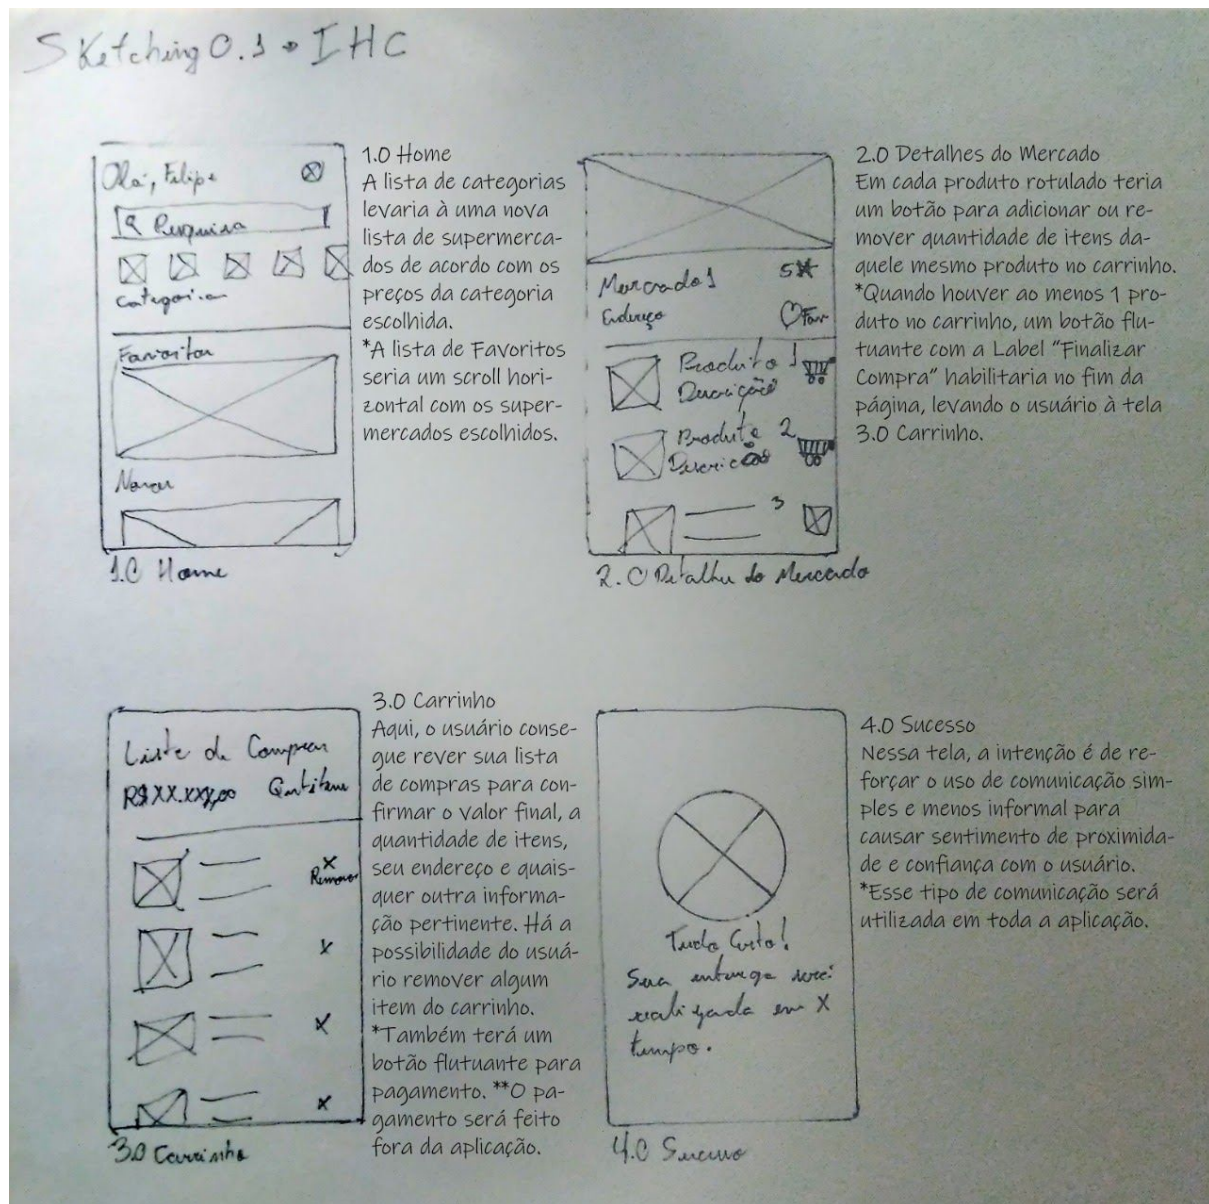 Sketching 0.1 • IHC
Olá, Felipe
Pesquisa
Categorias
Favoritos
Novos
1.0 Home
1.0 Home
A lista de categorias
levaria à uma nova
lista de supermerca-
dos de acordo com os
preços da categoria
escolhida.
*A lista de Favoritos
seria um scroll hori-
zontal com os super-
mercados escolhidos.
Mercado 1
5
Endereço
Fav
Produto 1
Descrição
Produto 2
Descrição
3
2.0 Detalhe do Mercado
2.0 Detalhes do Mercado
Em cada produto rotulado teria
um botão para adicionar ou re-
mover quantidade de itens da-
quele mesmo produto no carrinho.
*Quando houver ao menos 1 pro-
duto no carrinho, um botão flu-
tuante com a Label "Finalizar
Compra" habilitaria no fim da
página, levando o usuário à tela
3.0 Carrinho.
Lista de Compras
R$ XX.XXX,00
X
Remover
X
X
X
3.0 Carrinho
3.0 Carrinho
Aqui, o usuário conse-
gue rever sua lista
de compras para con-
firmar o valor final, a
quantidade de itens,
seu endereço e quais-
quer outra informa-
ção pertinente. Há a
possibilidade do usuá-
rio remover algum
item do carrinho.
*Também terá um
botão flutuante para
pagamento. **O pa-
gamento será feito
fora da aplicação.
Tudo Certo!
Sua entrega será
realizada em X
tempo.
4.0 Sucesso
4.0 Sucesso
Nessa tela, a intenção é de re-
forçar o uso de comunicação sim-
ples e menos informal para
causar sentimento de proximida-
de e confiança com o usuário.
*Esse tipo de comunicação será
utilizada em toda a aplicação.